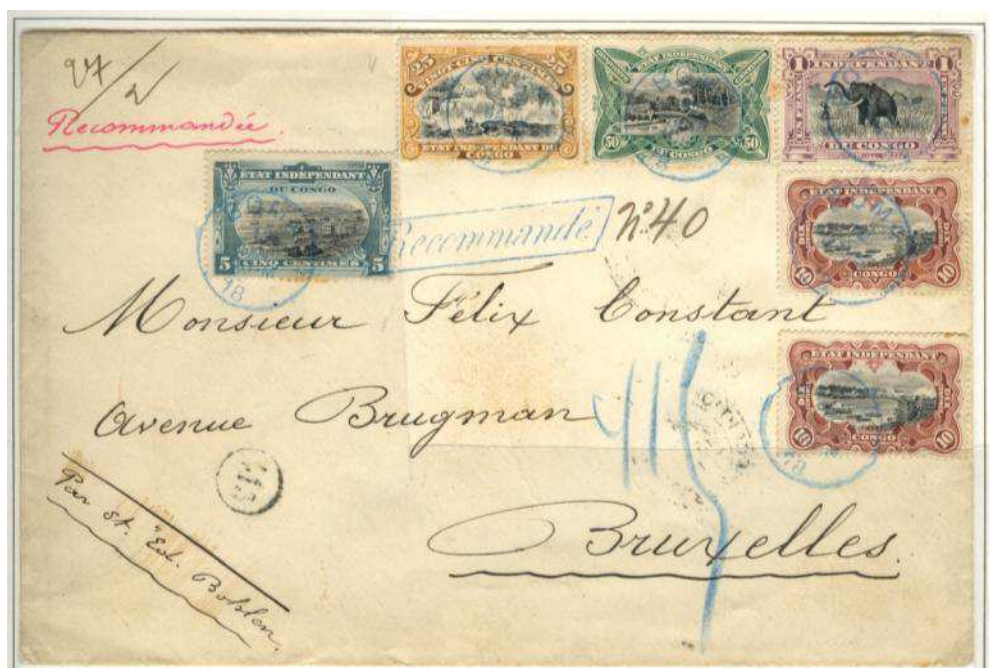 27/2
Recommandée.
25 25
VINGT CINQ CENTIMES
ETAT INDEPENDANT DU
CONGO
ETAT INDEPENDANT
50 DU CONGO 50
1 INDEPENDANT 1
DU CONGO
ETAT INDEPENDANT
DU CONGO
5 CINQ CENTIMES 5
18
Recommandé
N° 40
ETAT INDEPENDANT
DIX DIX
10 CONGO 10
Monsieur Félix Constant
ETAT INDEPENDANT
DIX DIX
10 CONGO 10
18
Avenue Brugman
Par st. "Ed. Bohlen"
Bruxelles.